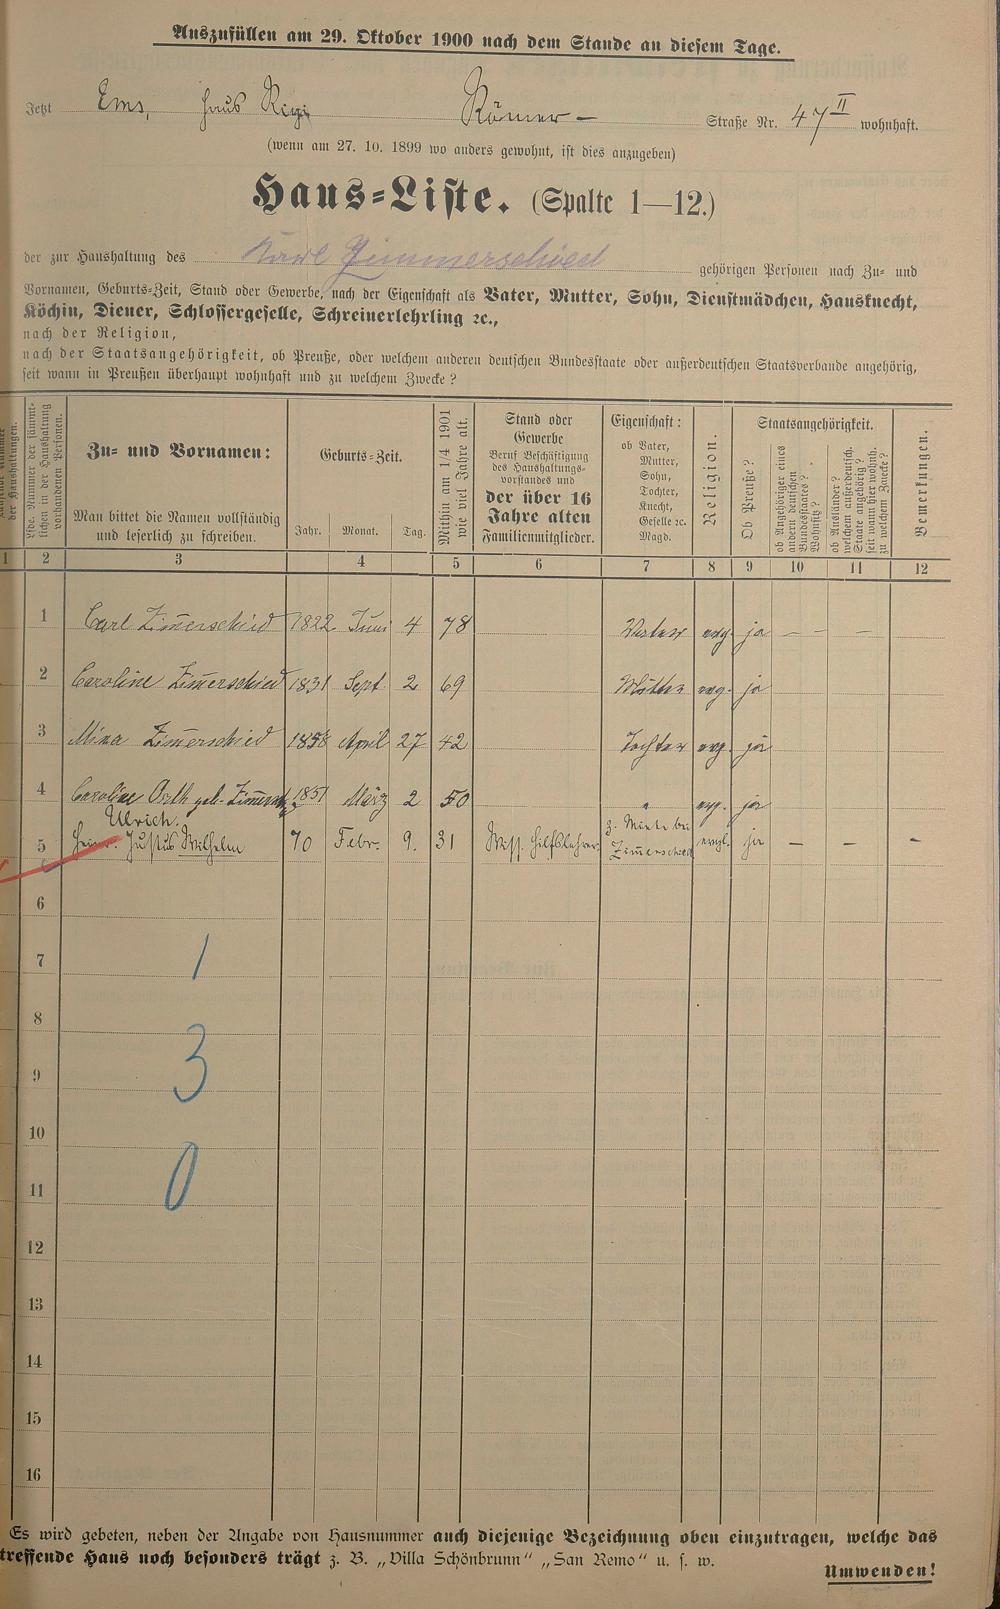 Auszufüllen am 29. Oktober 1900 nach dem Stande an diesem Tage.
Jetzt Ems, Haus Rigi Römer- Straße Nr. 47 II wohnhaft.
(wenn am 27. 10. 1899 wo anders gewohnt, ist dies anzugeben)
Haus-Liste. (Spalte 1—12.)
der zur Haushaltung des Karl Zimmerschied gehörigen Personen nach Zu- und
Vornamen, Geburts-Zeit, Stand oder Gewerbe, nach der Eigenschaft als Vater, Mutter, Sohn, Dienstmädchen, Hausknecht,
Köchin, Diener, Schlossergeselle, Schreinerlehrling ꝛc.,
nach der Religion,
nach der Staatsangehörigkeit, ob Preuße, oder welchem anderen deutschen Bundesstaate oder außerdeutschen Staatsverbande angehörig,
seit wann in Preußen überhaupt wohnhaft und zu welchem Zwecke?
der Haushaltungen.
Lfde. Nummer der sämmt-
lichen in der Haushaltung
vorhandenen Personen.
Zu- und Vornamen:
Man bittet die Namen vollständig
und leserlich zu schreiben.
Geburts-Zeit.
Jahr. Monat. Tag.
Mithin am 1/4 1901
wie viel Jahre alt.
Stand oder
Gewerbe
Beruf Beschäftigung
des Haushaltungs-
vorstandes und
der über 16
Jahre alten
Familienmitglieder.
Eigenschaft:
ob Vater,
Mutter,
Sohn,
Tochter,
Knecht,
Geselle ꝛc.
Magd.
Religion.
Staatsangehörigkeit.
Ob Preuße?
ob Angehöriger eines
andern deutschen
Bundesstaates?
Wohnsitz?
ob Ausländer?
welchem außerdeutsch.
Staate angehörig?
seit wann hier wohnh.
zu welchem Zwecke?
Bemerkungen.
1 2 3 4 5 6 7 8 9 10 11 12
1 Carl Zim̄erschied 1822 Juni 4 78 Vater evg. ja — — —
2 Caroline Zim̄erschied 1831 Sept. 2 69 Mutter evg. ja
3 Mina Zim̄erschied 1858 April 27 42 Tochter evg. ja
4 Caroline Orth geb. 1851 März 2 50 " evg. ja
Ulrich.
5 Heinr. Justus Wilhelm 70 Febr. 9. 31 Wiss. Hilfslehrer z. Miete bei Zim̄erschied evgl. ja — — -
6
7 1
8
9 3
10
11 0
12
13
14
15
16
Es wird gebeten, neben der Angabe von Hausnummer auch diejenige Bezeichnung oben einzutragen, welche das
treffende Haus noch besonders trägt z. B. „Villa Schönbrunn" „San Remo" u. s. w.
Umwenden!